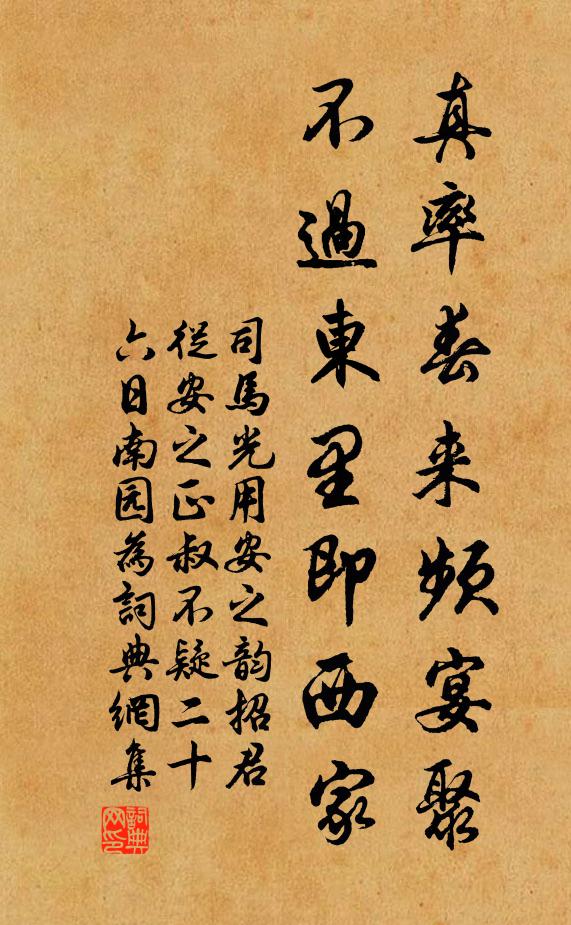 真率春来頻宴聚
不過東里即西家
司馬光用安之韵招君
從安之正叔不疑二十
六日南园為詞典網集
詞典网印